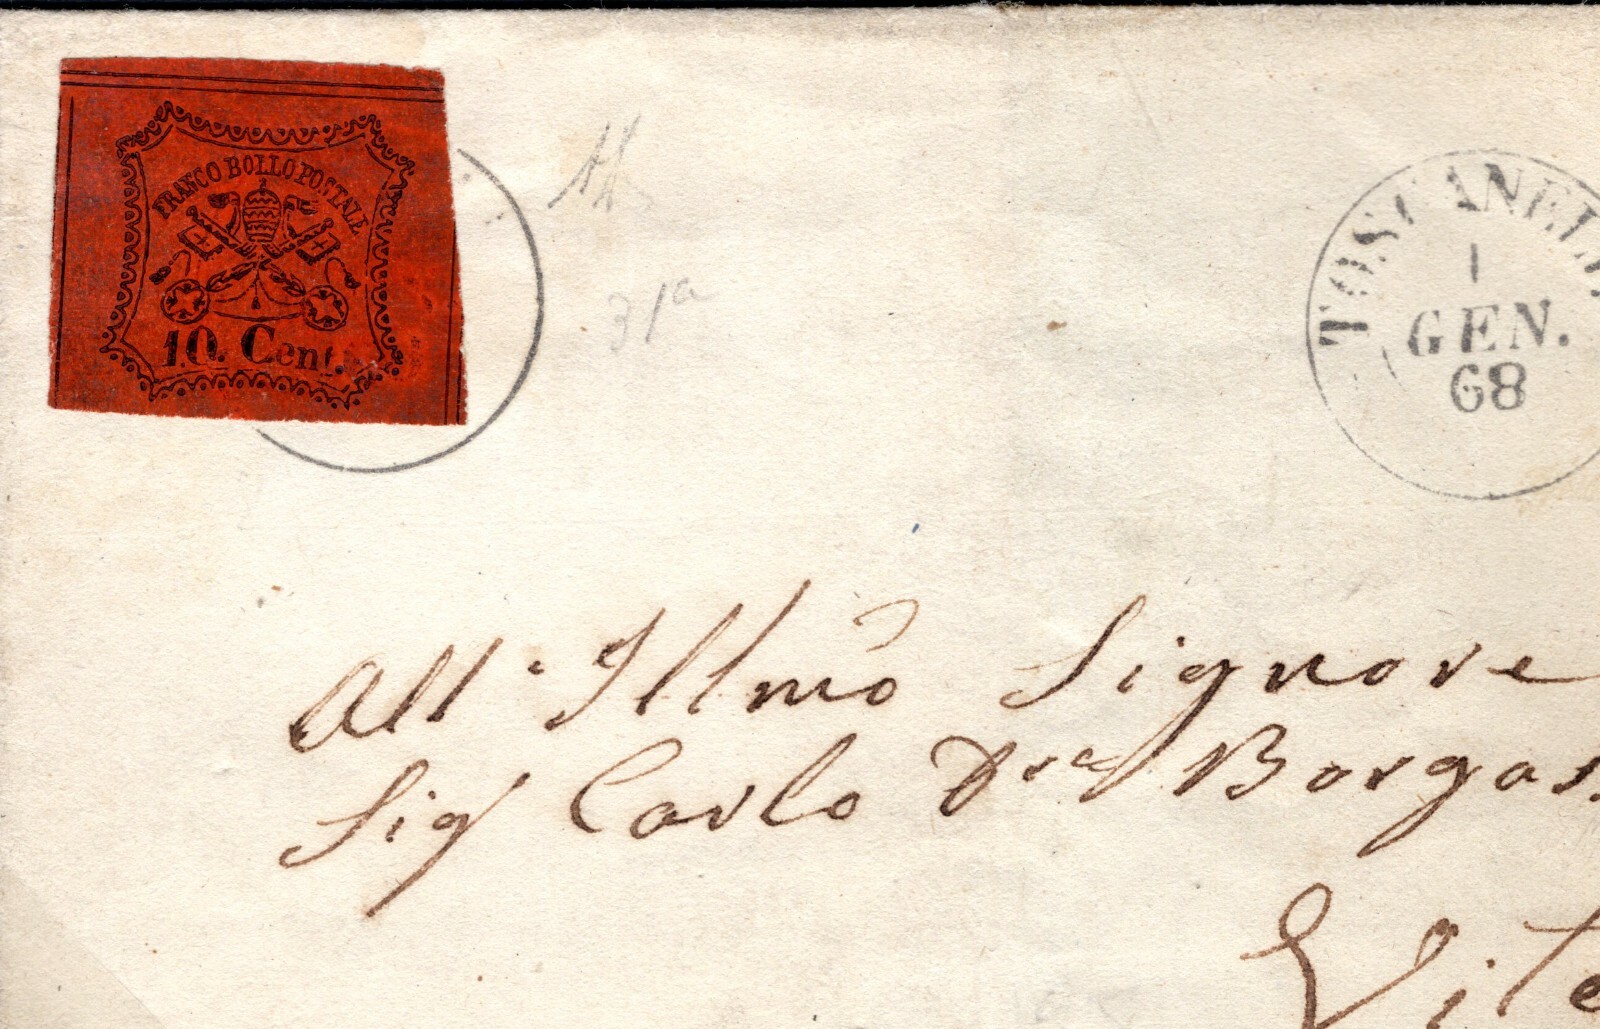 FRANCO BOLLO POSTALE
10. Cent.
31a
TOSCANELL
1
GEN.
68
All' Illmo Signore
Sig Carlo Dre Borgas
Vite